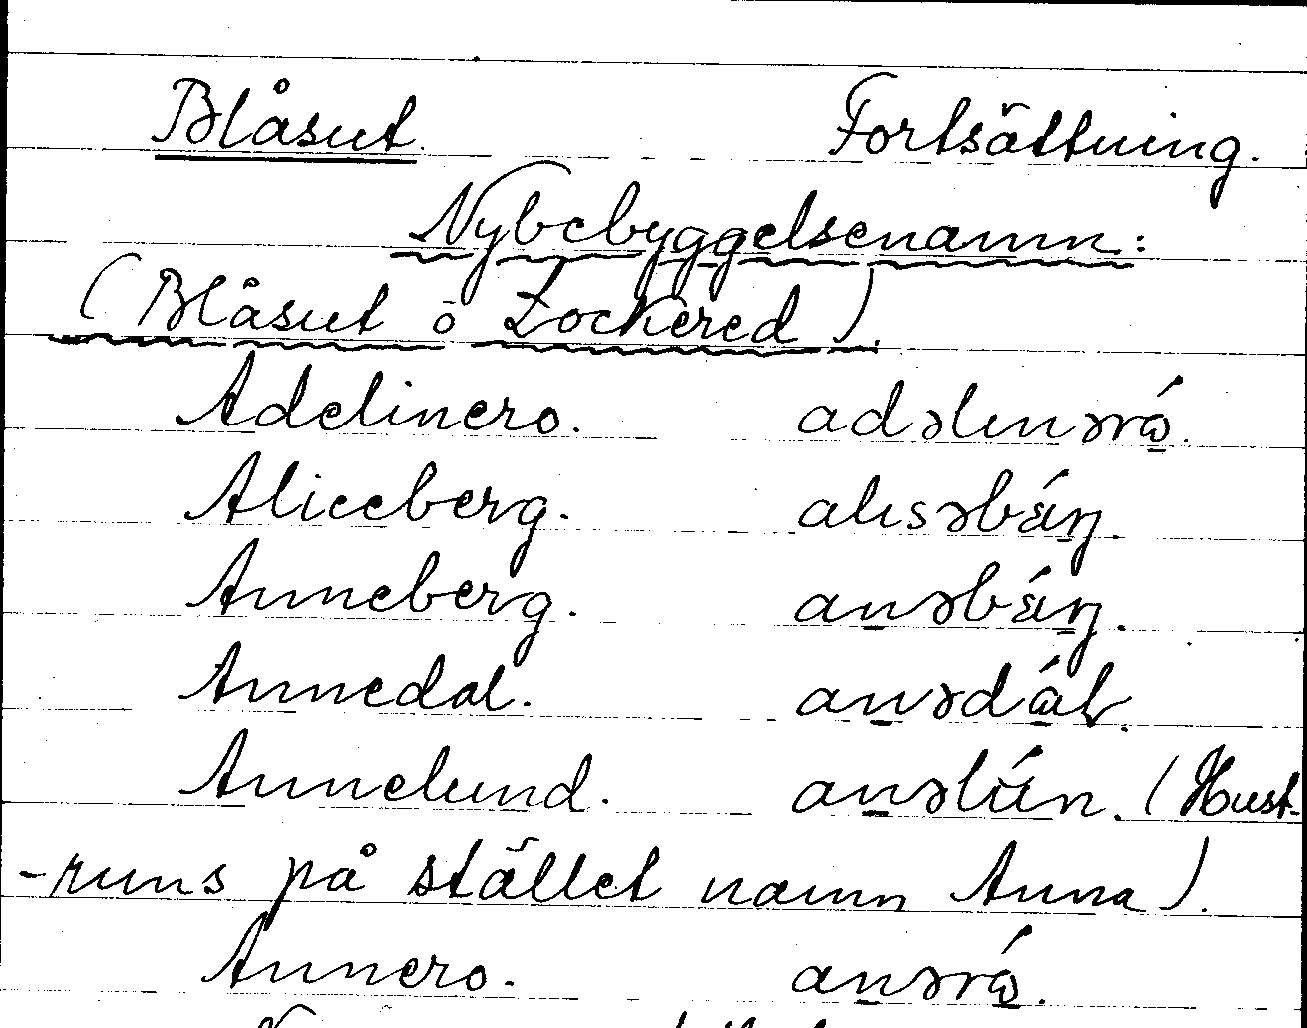 Blåsut. Fortsättning.
Nybebyggelsenamn:
(Blåsut o Lockered).
Adelinero. adəlinərώ.
Aliceberg. alisəbárj.
Anneberg. anəbárj.
Annedal. anədάl.
Annelund. anəlún. (Hust-
-runs på stället namn Anna).
Annero. anərώ.